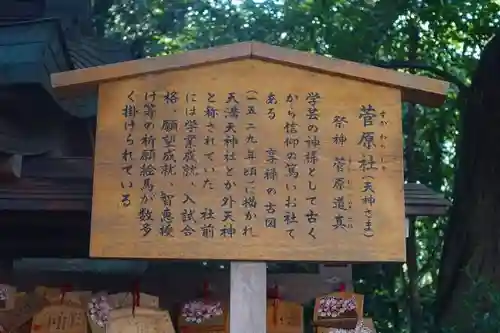 菅原社（天神さま）
すがわらしゃ
祭神 菅原道真
学芸の神様として古く
から信仰の篤いお社で
ある　享禄の古図
（一五二九年頃）に描かれ
天満天神社とか外天神
と称されていた　社前
には学業成就、入試合
格、願望成就、智恵授
け等の祈願絵馬が数多
く掛けられている